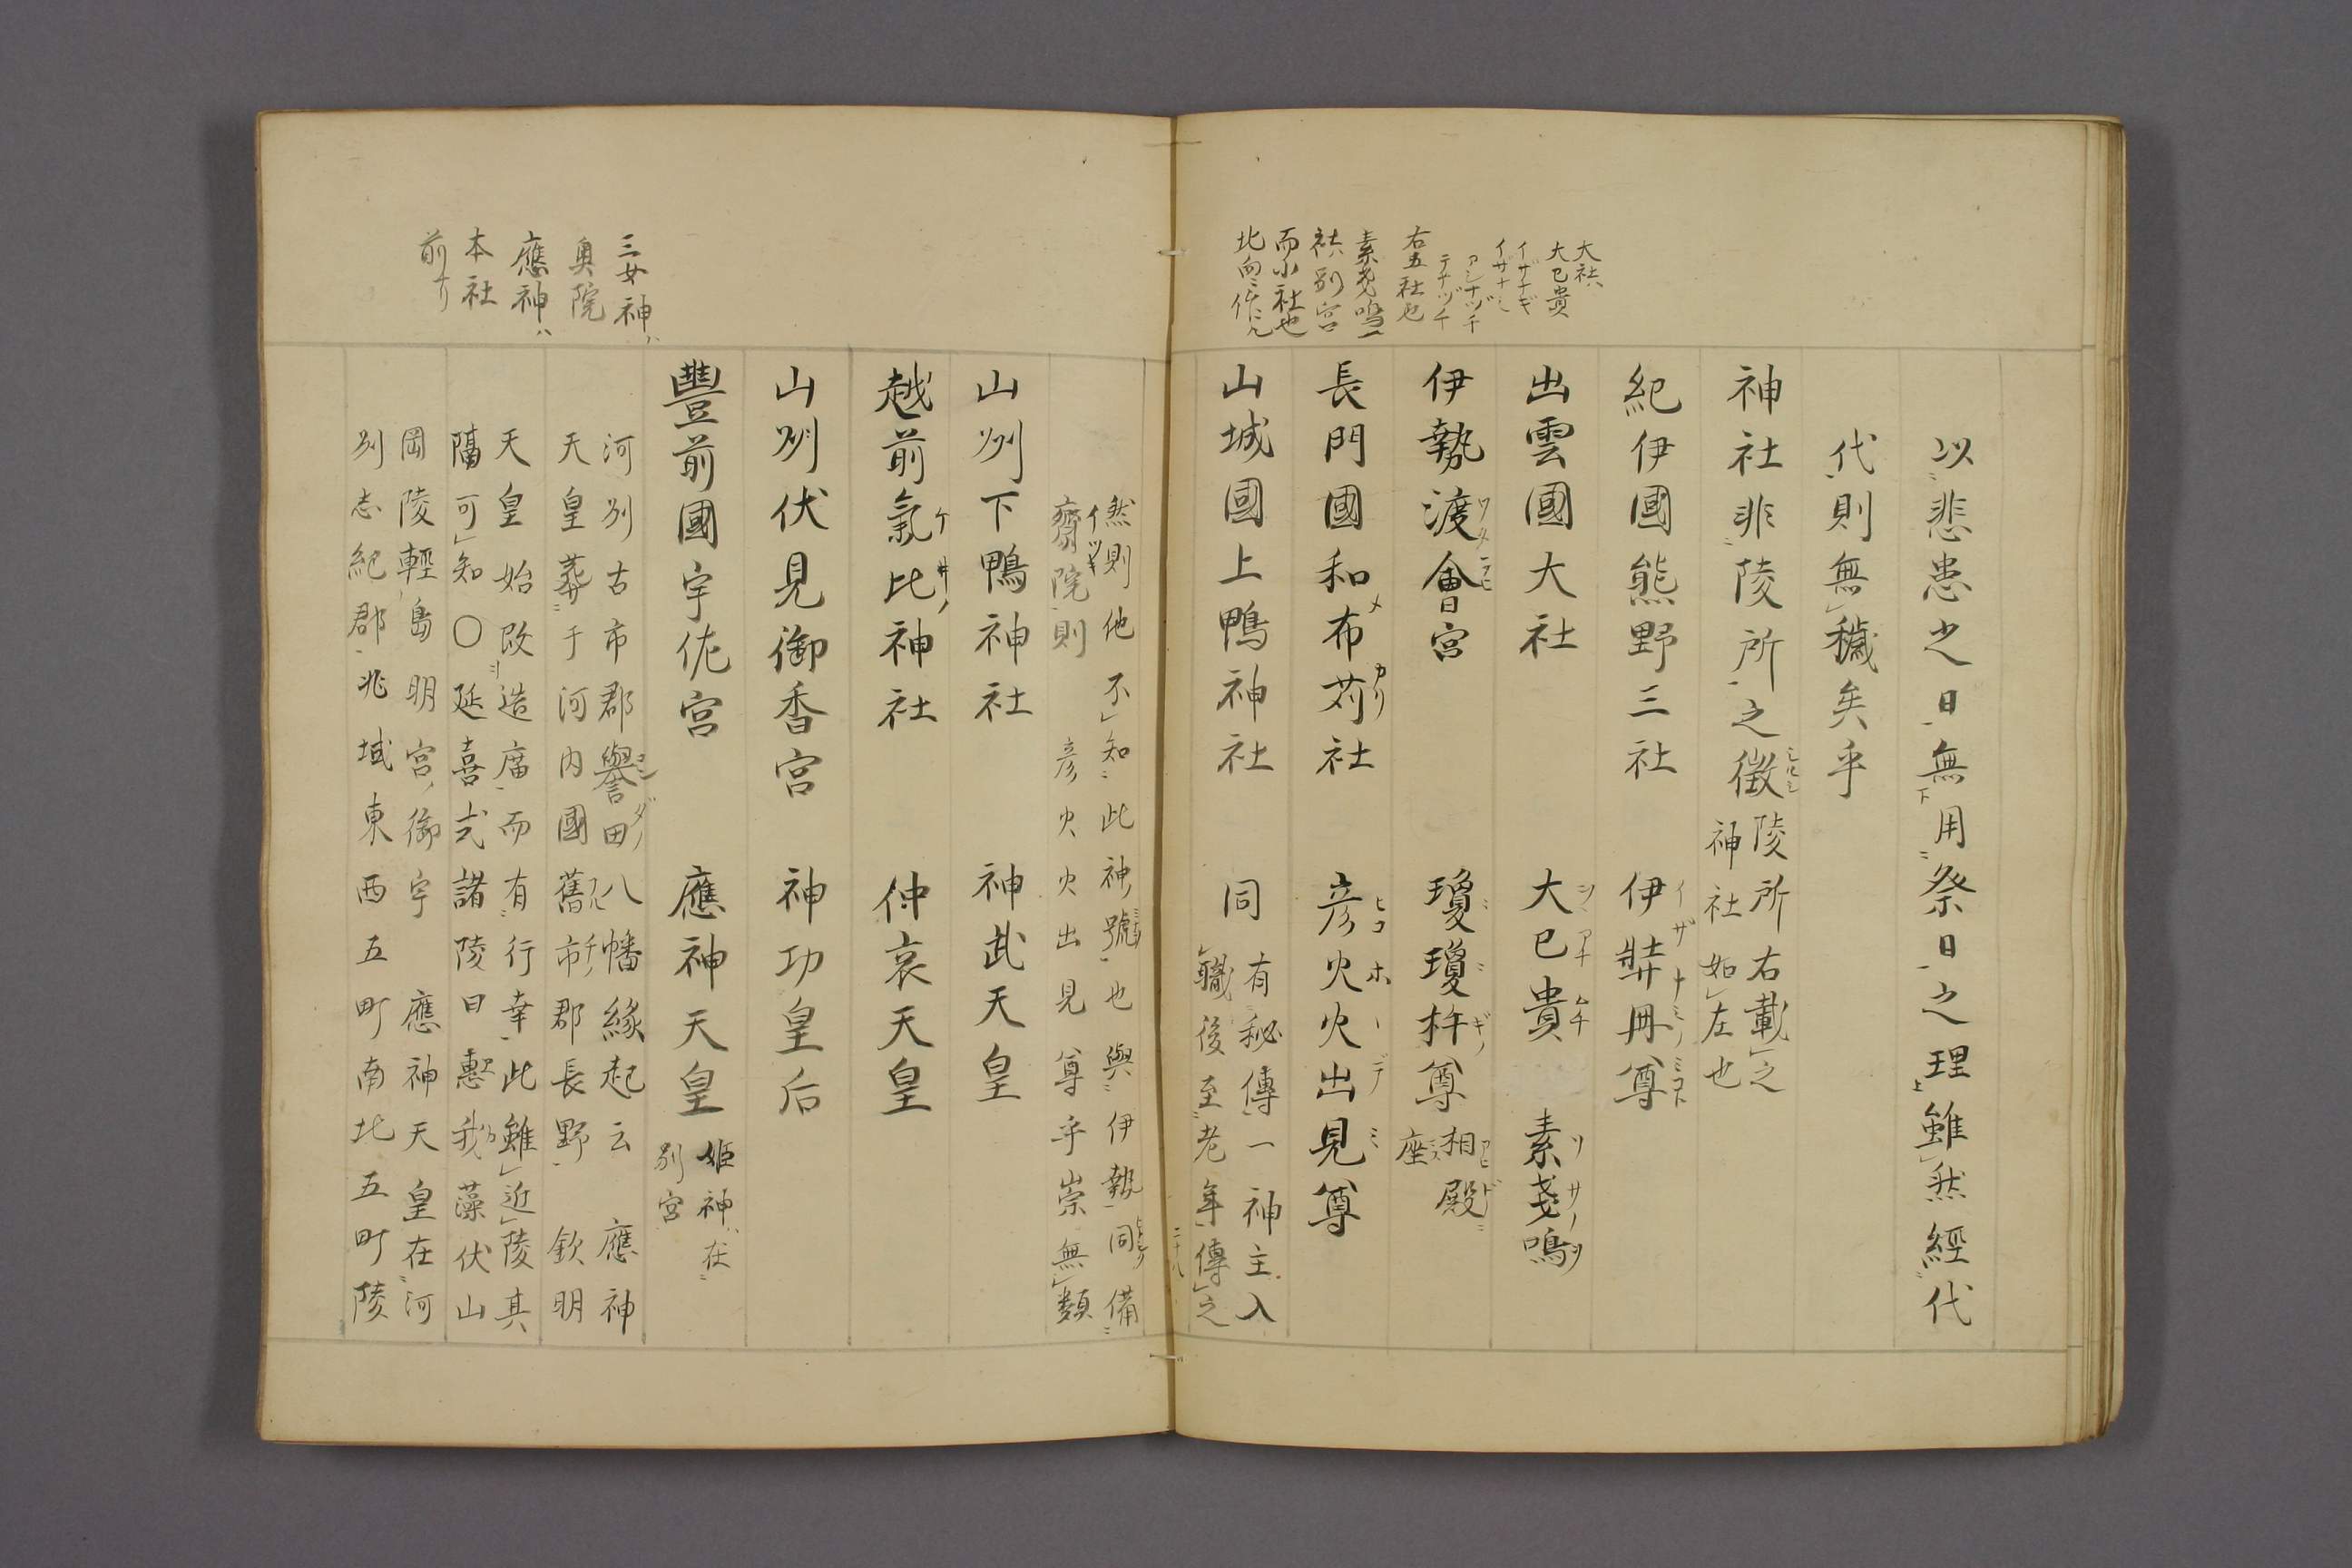 以悲患之日無用祭日之理雖然經代
代則無穢矣乎
神社非陵所之徴
陵所右載之
神社如左也
紀伊國熊野三社 伊弉冊尊
出雲國大社 大已貴 素戔嗚
伊勢渡會宮 瓊瓊杵尊
相殿
座
長門國和布苅社 彦火火出見尊
山城國上鴨神社 同
有秘傳一神主入
職後至老年傳之
大社ハ
大已貴
イザナギ
イザナミ
アシナヅチ
テナヅチ
右五社也
素戔嗚ハ
社別宮
而小社也
北向ニ作ル
二十八
然則他不知此神號也與伊勢同備
齋院則 彦火火出見尊乎崇無類
山州下鴨神社 神武天皇
越前氣比神社 仲哀天皇
山州伏見御香宮 神功皇后
豐前國宇佐宮 應神天皇
姫神ハ在
別宮
河州古市郡譽田八幡緣起云 應神
天皇葬于河内國舊市郡長野 欽明
天皇始改造廣而有行幸此雖近陵其
隔可知〇延喜式諸陵曰惠我藻伏山
岡陵輕島明宮御宇 應神天皇在河
州志紀郡兆域東西五町南北五町陵
三女神ハ
奥院
應神ハ
本社
前ナリ